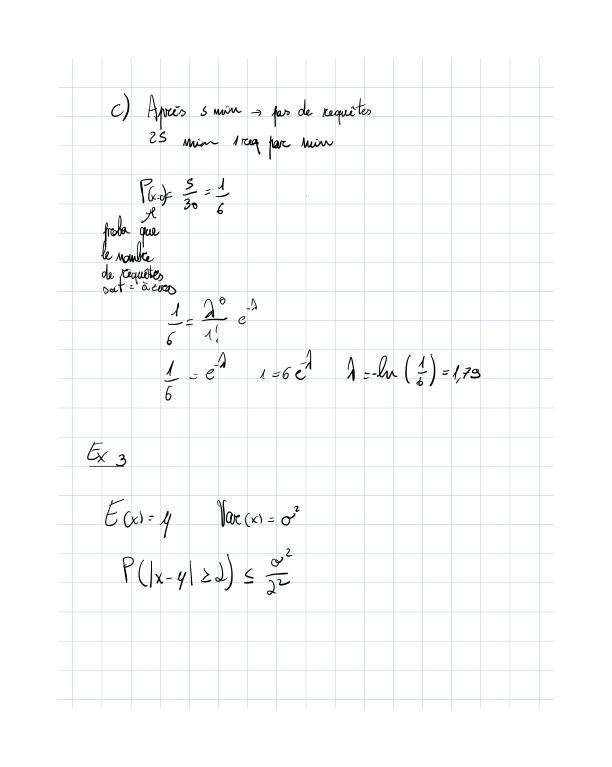 c) Après 5 min → pas de requêtes
25 min 1 req par min
P(x=0) = 5/30 = 1/6
proba que
le nombre
de requêtes
soit = à zero
1/6 = λ^0/1! e^-λ
1/6 = e^-λ 1 = 6 e^-λ λ = -ln (1/6) = 1,79
Ex 3
E(x) = μ Var(x) = σ²
P(|x-μ| ≥ λ) ≤ σ²/λ²